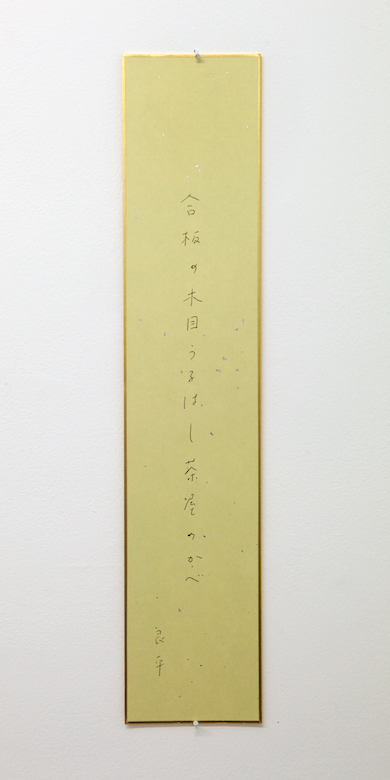 合板の木目うるはし茶屋のかべ
良平